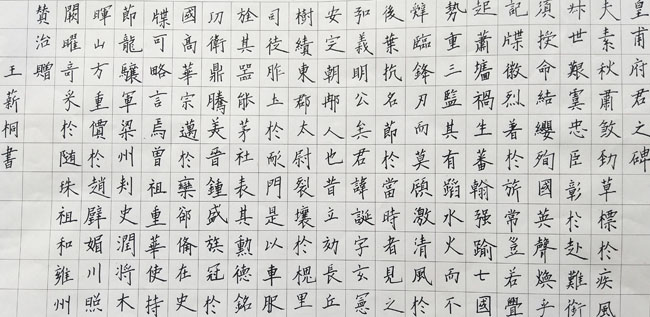 皇甫府君之碑
夫素秋肅煞勁草標於疾風
叔世艱虞忠臣彰於赴難銜
須授命結纓殉國英聲煥乎
記牒徽烈著於旂常豈若舋
起蕭墻禍生蕃翰强踰七國
勢重三監其有蹈水火而不
臨鋒刃而莫顧激清風於
後葉抗名節於當時者見之
義明公矣君諱誕字玄憲
安定朝䢴人也昔立効長丘
樹績東郡太尉裂壤於槐里
司徒胙土於耏門是以車服
旌其器能茅社表其勳德銘
功衛鼎騰美晉鍾盛族冠於
國高華宗邁於欒郤俻在史
牒可略言焉曾祖重華使持
節龍驤軍梁州刾史潤將木
暉山方重價於趙璧媚川照
闕曜奇采於随珠祖和雍州
賛治贈
王薪桐書